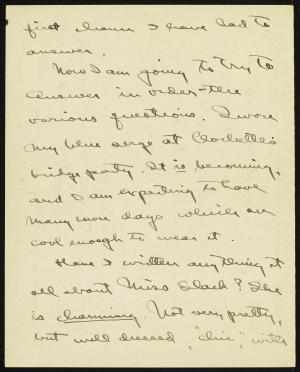 first chance I have had to
answer.
Now I am going to try to
answer in order - the
various questions. I wore
my blue serge at Clochette's
bridge party. It is becoming,
and I am expecting to have
many more days which are
cool enough to wear it.
Have I written anything at
all about Miss Slack? She
is charming. Not very pretty,
but well dressed, "chic", with